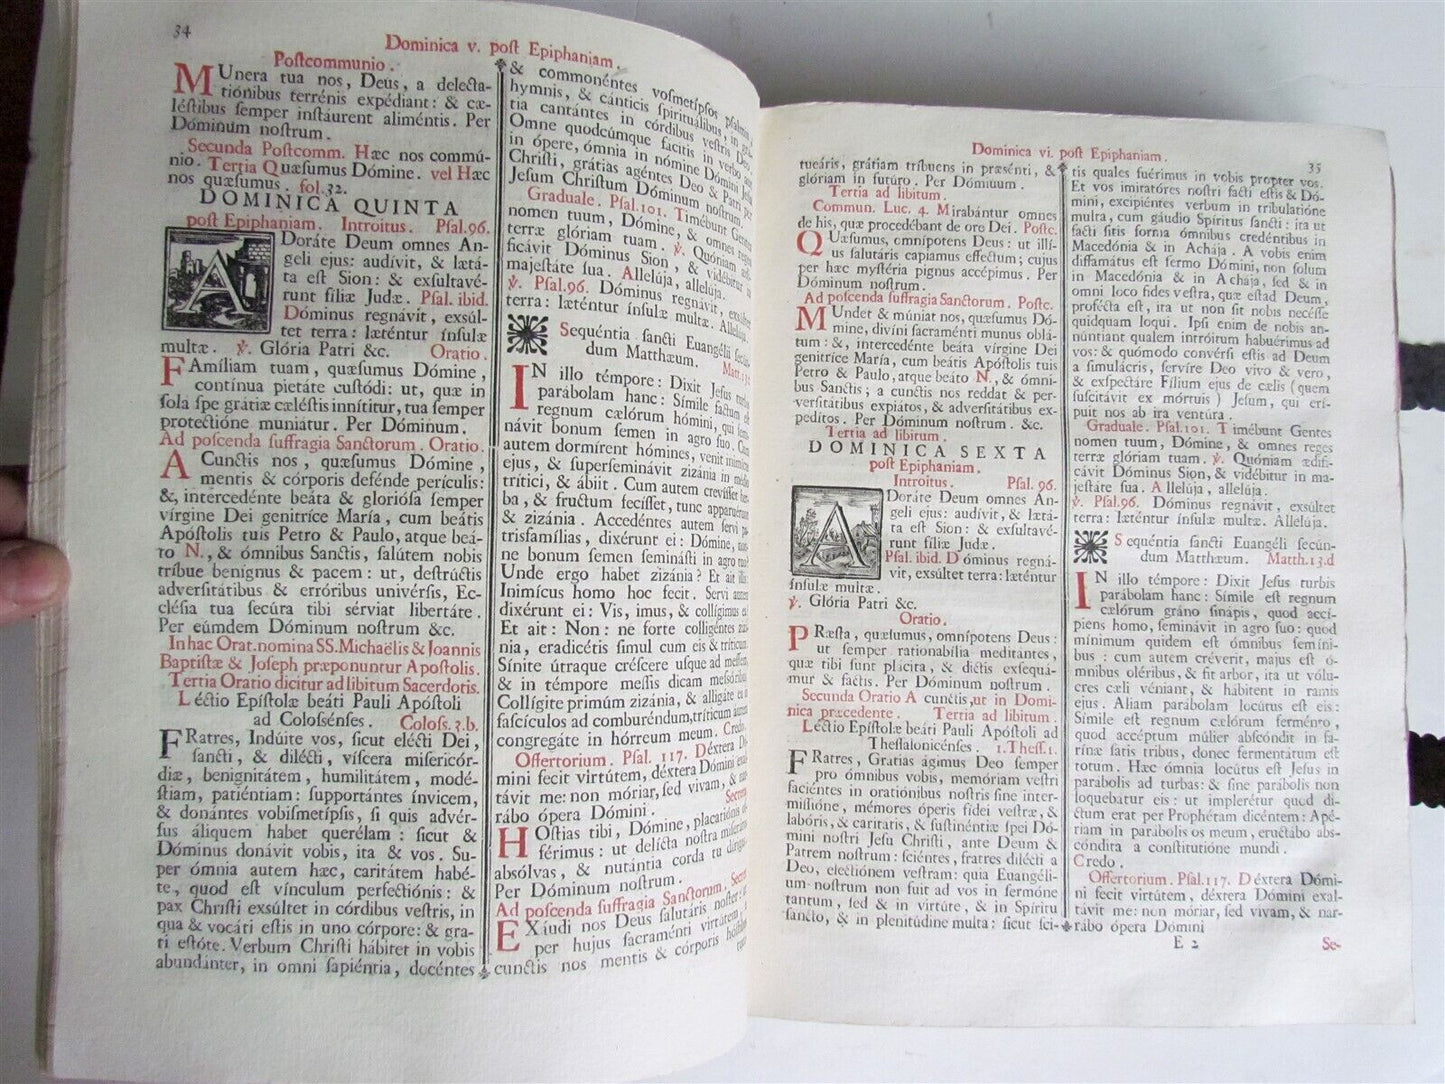 34
Dominica v. poſt Epiphaniam.
Poſtcommunio.
MUnera tua nos, Deus, a delecta-
tiónibus terrénis expédiant: & cæ-
léſtibus ſemper inſtáurent aliméntis. Per
Dóminum noſtrum.
Secunda Poſtcomm. Hæc nos commú-
nio. Tertia Quæſumus Dómine. vel Hæc
nos quæſumus. fol.32.
DOMINICA QUINTA
poſt Epiphaniam. Introitus. Pſal.96.
ADoráte Deum omnes An-
geli ejus: audívit, & lætá-
ta eſt Sion: & exſultavé-
runt filiæ Judæ. Pſal. ibid.
Dóminus regnávit, exsúl-
tet terra: læténtur ínſulæ
multæ. ℣. Glória Patri &c. Oratio.
FAmíliam tuam, quæſumus Dómine,
contínua pietáte cuſtódi: ut, quæ in
ſola ſpe grátiæ cæléſtis innítitur, tua ſemper
protectióne muniátur. Per Dóminum.
Ad poſcenda ſuffragia Sanctorum. Oratio.
A Cunctis nos, quæſumus Dómine,
mentis & córporis defénde perículis:
&, intercedénte beáta & glorióſa ſemper
vírgine Dei genitríce María, cum beátis
Apóſtolis tuis Petro & Paulo, atque beá-
to N., & ómnibus Sanctis, ſalútem nobis
tríbue benígnus & pacem: ut, deſtrúctis
adverſitátibus & erróribus univérſis, Ec-
cléſia tua ſecúra tibi sérviat libertáte.
Per eúmdem Dóminum noſtrum &c.
In hac Orat. nomina SS. Michaëlis & Joannis
Baptiſtæ & Joſeph præponuntur Apoſtolis.
Tertia Oratio dicitur ad libitum Sacerdotis.
Léctio Epíſtolæ beáti Pauli Apóſtoli
ad Coloſsénſes. Coloſs. 3.b.
FRatres, Indúite vos, ſicut elécti Dei,
ſancti, & dilécti, víſcera miſericór-
diæ, benignitátem, humilitátem, modé-
ſtiam, patiéntiam: ſupportántes ínvicem,
& donántes vobiſmetípſis, ſi quis advér-
ſus áliquem habet querélam: ſicut &
Dóminus donávit vobis, ita & vos. Su-
per ómnia autem hæc, caritátem habé-
te, quod eſt vínculum perfectiónis: &
pax Chriſti exsúltet in córdibus veſtris, in
qua & vocáti eſtis in uno córpore: & gra-
ti eſtóte. Verbum Chriſti hábitet in vobis
abundánter, in omni ſapiéntia, docéntes
& commonéntes voſmetípſos pſalmis,
hymnis, & cánticis ſpirituálibus, in grá-
tia cantántes in córdibus veſtris Deo.
Omne quodcúmque facitis in verbo aut
in ópere, ómnia in nómine Dómini Jeſu
Chriſti, grátias agéntes Deo & Patri per
Jeſum Chriſtum Dóminum noſtrum.
Graduale. Pſal.101. Timébunt Gentes
nomen tuum, Dómine, & omnes reges
terræ glóriam tuam. ℣. Quóniam ædi-
ficávit Dóminus Sion, & vidébitur in
majeſtáte ſua. Allelúja, allelúja.
℣. Pſal.96. Dóminus regnávit, exsúltet
terra: læténtur ínſulæ multæ. Allelúja.
Sequéntia ſancti Euangélii ſecún-
dum Matthæum. Matt.13.
IN illo témpore: Dixit Jeſus turbis
parábolam hanc: Símile factum eſt
regnum cælórum hómini, qui ſemi-
návit bonum ſemen in agro ſuo. Cum
autem dormírent hómines, venit inimícus
ejus, & ſuperſeminávit zizánia in médio
trítici, & ábiit. Cum autem creviſſet her-
ba, & fructum feciſſet, tunc apparuérunt
& zizánia. Accedéntes autem ſervi pa-
trisfamílias, dixérunt ei: Dómine, non-
ne bonum ſemen ſeminásti in agro tuo?
Unde ergo habet zizánia? Et ait illis:
Inimícus homo hoc fecit. Servi autem
dixérunt ei: Vis, imus, & collígimus ea?
Et ait: Non: ne forte colligéntes zizá-
nia, eradicétis ſimul cum eis & tríticum.
Sínite útraque créſcere uſque ad meſſem,
& in témpore meſſis dicam meſſóribus:
Collígite primúm zizánia, & alligáte ea in
faſcículos ad comburéndum, tríticum autem
congregáte in hórreum meum. Credo.
Offertorium. Pſal. 117. Déxtera Dó-
mini fecit virtútem, déxtera Dómini exal-
távit me: non móriar, ſed vivam, & nar-
rábo ópera Dómini. Secreta
HOſtias tibi, Dómine, placatiónis of-
férimus: ut delícta noſtra miſerátus
absólvas, & nutántia corda tu dírigas.
Per Dóminum noſtrum.
Ad poſcenda ſuffragia Sanctorum. Secret.
EXáudi nos Deus ſalutáris noſter: ut
per hujus ſacraménti virtútem, a
cunctis nos mentis & córporis hóſtibus
tueá-
Dominica vi. poſt Epiphaniam.
35
tueáris, grátiam tríbuens in præsénti, &
glóriam in futúro. Per Dóminum.
Tertia ad libitum.
Commun. Luc. 4. Mirabántur omnes
de his, quæ procedébant de ore Dei. Poſtc.
QUæſumus, omnípotens Deus: ut illí-
us ſalutáris capiamus efféctum; cujus
per hæc myſtéria pignus accépimus. Per
Dóminum noſtrum.
Ad poſcenda ſuffragia Sanctorum. Poſtc.
MUndet & múniat nos, quæſumus Dó-
mine, divíni ſacraménti munus oblá-
tum: &, intercedénte beáta vírgine Dei
genitríce María, cum beátis Apóſtolis tuis
Petro & Paulo, atque beáto N., & ómni-
bus Sanctis; a cunctis nos reddat & per-
verſitátibus expiátos, & adverſitátibus ex-
pedítos. Per Dóminum noſtrum. &c.
Tertia ad libitum.
DOMINICA SEXTA
poſt Epiphaniam.
Introitus. Pſal. 96.
ADoráte Deum omnes An-
geli ejus: audívit, & lætá-
ta eſt Sion: & exſultavé-
runt filiæ Judæ.
Pſal. ibid. Dóminus regná-
vit, exsúltet terra: læténtur
ínſulæ multæ.
℣. Glória Patri &c.
Oratio.
PRæſta, quæſumus, omnípotens Deus:
ut ſemper rationabília meditántes,
quæ tibi ſunt plácita, & dictis exſequá-
mur & factis. Per Dóminum noſtrum.
Secunda Oratio A cunctis, ut in Domi-
nica præcedente. Tertia ad libitum.
Léctio Epíſtolæ beáti Pauli Apóſtoli ad
Theſſalonicénſes. 1.Theſſ.1.
FRatres, Grátias ágimus Deo ſemper
pro ómnibus vobis, memóriam veſtri
faciéntes in oratiónibus noſtris ſine inter-
miſſióne, mémores óperis fídei veſtræ, &
labóris, & caritátis, & ſuſtinéntiæ ſpei Dó-
mini noſtri Jeſu Chriſti, ante Deum &
Patrem noſtrum: ſciéntes, fratres dilécti a
Deo, electiónem veſtram: quia Euangéli-
um noſtrum non fuit ad vos in ſermóne
tantum, ſed & in virtúte, & in Spíritu
ſancto, & in plenitúdine multa: ſicut ſci-
tis quales fuérimus in vobis propter vos.
Et vos imitatóres noſtri facti eſtis & Dó-
mini, excipiéntes verbum in tribulatióne
multa, cum gáudio Spíritus ſancti: ita ut
facti ſitis forma ómnibus credéntibus in
Macedónia & in Achája. A vobis enim
diffamátus eſt ſermo Dómini, non ſolum
in Macedónia & in Achája, ſed & in
omni loco fides veſtra, quæ eſt ad Deum,
profécta eſt, ita ut non ſit nobis necéſſe
quidquam loqui. Ipſi enim de nobis an-
núntiant qualem intróitum habuérimus ad
vos: & quómodo convérſi eſtis ad Deum
a ſimulácris, ſervíre Deo vivo & vero,
& exſpectáre Fílium ejus de cælis (quem
ſuſcitávit ex mórtuis) Jeſum, qui erí-
puit nos ab ira ventúra.
Graduale. Pſal.101. Timébunt Gentes
nomen tuum, Dómine, & omnes reges
terræ glóriam tuam. ℣. Quóniam ædifi-
cávit Dóminus Sion, & vidébitur in ma-
jeſtáte ſua. Allelúja, allelúja.
℣. Pſal.96. Dóminus regnávit, exsúltet
terra: læténtur ínſulæ multæ. Allelúja.
Sequéntia ſancti Euangéli ſecún-
dum Matthæum. Matth.13.d
IN illo témpore: Dixit Jeſus turbis
parábolam hanc: Símile eſt regnum
cælórum grano ſinápis, quod accí-
piens homo, ſeminávit in agro ſuo: quod
mínimum quidem eſt ómnibus ſemíni-
bus: cum autem créverit, majus eſt ó-
mnibus oléribus, & fit arbor, ita ut vólu-
cres cæli véniant, & hábitent in ramis
ejus. Aliam parábolam locútus eſt eis:
Símile eſt regnum cælórum ferménto,
quod accéptum múlier abſcóndit in fa-
rínæ ſatis tribus, donec fermentátum eſt
totum. Hæc ómnia locútus eſt Jeſus in
parábolis ad turbas: & ſine parábolis non
loquebátur eis: ut impleretur quod di-
ctum erat per Prophétam dicéntem: Apé-
riam in parábolis os meum, eructábo abs-
cóndita a conſtitutióne mundi.
Credo.
Offertorium. Pſal.117. Déxtera Dómi-
ni fecit virtútem, déxtera Dómini exal-
távit me: non móriar, ſed vivam, & nar-
rábo ópera Dómini
E 2 Se-